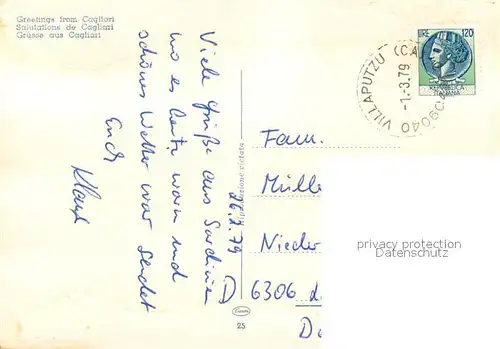 Greetings from Cagliari
Salutations de Cagliari
Grüsse aus Cagliari
Viele Grüße aus Sardinien
wo es heute warm und
schönes Wetter war sendet
Euch
Klaus
26.2.79
Riproduzione vietata
25
LIRE 120
REPUBBLICA
ITALIANA
09040 VILLAPUTZU (CA
-1.-3.79
Fam.
Mülle
Nieder
D 6306
privacy protection
Datenschutz